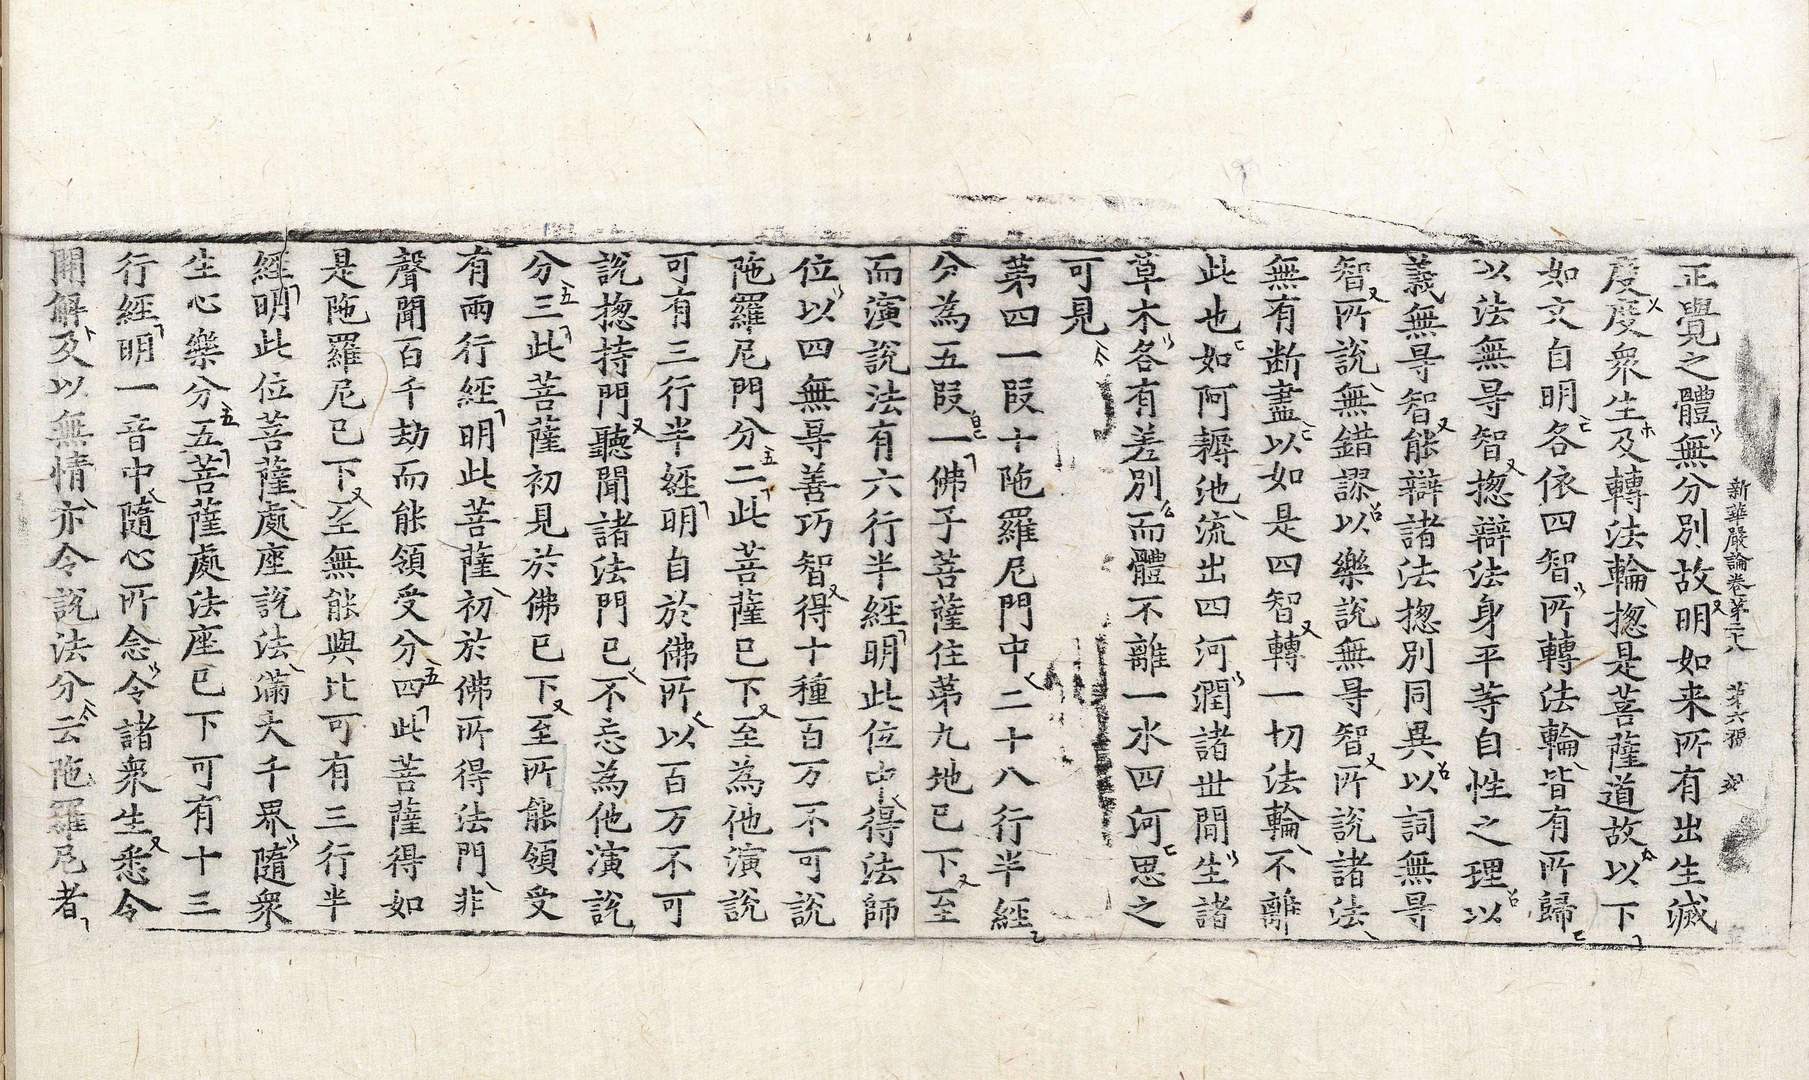 新華嚴論卷第二十八 第六張
正覺之體無分別故明如来所有出生滅
度度衆生及轉法輪揔是菩薩道故以下
如文自明各依四智所轉法輪皆有所歸
以法無㝵智揔辯法身平等自性之理以
義無㝵智能辯諸法揔別同異以詞無㝵
智所說無錯謬以樂說無㝵智所說諸法
無有断盡以如是四智轉一切法輪不離
此也如阿耨池流出四河潤諸世間生諸
草木各有差別而體不離一水四河思之
可見
第四一段十陁羅尼門中二十八行半經
分為五段一佛子菩薩住第九地已下至
而演說法有六行半經明此位中得法師
位以四無㝵善巧智得十種百万不可說
陁羅尼門分二此菩薩已下至為他演說
可有三行半經明自於佛所以百万不可
說揔持門聽聞諸法門已不忘為他演說
分三此菩薩初見於佛已下至所能領受
有兩行經明此菩薩初於佛所得法門非
聲聞百千劫而能領受分四此菩薩得如
是陁羅尼已下至無能與比可有三行半
經明此位菩薩處座說法滿大千界隨衆
生心樂分五菩薩處法座已下可有十三
行經明一音中隨心所念令諸衆生悉令
開解及以無情亦令說法分云陁羅尼者